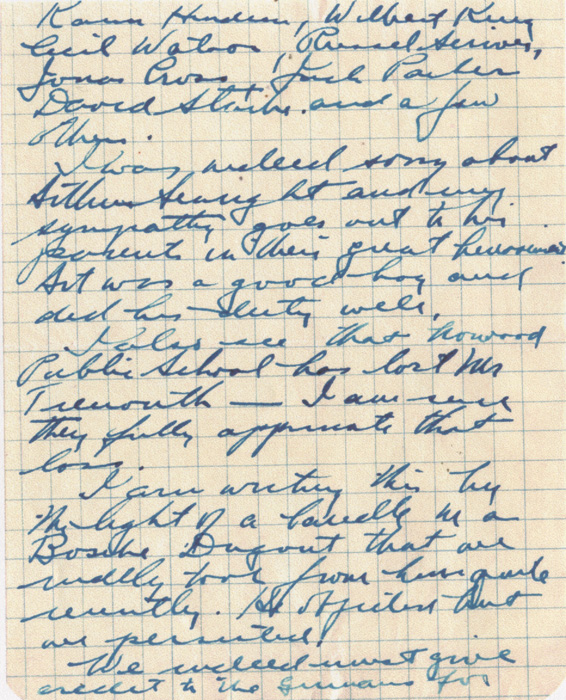 Karn Hendren, Wilbert King
Cecil Watson, Russel Scriver,
Jonas Cross Jack Parker
David Stribe and a few
others.
I was indeed sorry about
Arthur Seright and my
sympathy goes out to his
parents in their great bereavement
Art was a good boy and
did his duty well.
I also see that Norwood
Public School has lost Mr
Tremouth — I am sure
they fully appreciate that
loss.
I am writing this by
the light of a candle in a
Bosche Dugout that we
rudely took from him quite
recently. He objected but
we persisted!
We indeed must give
credit to the Germans for